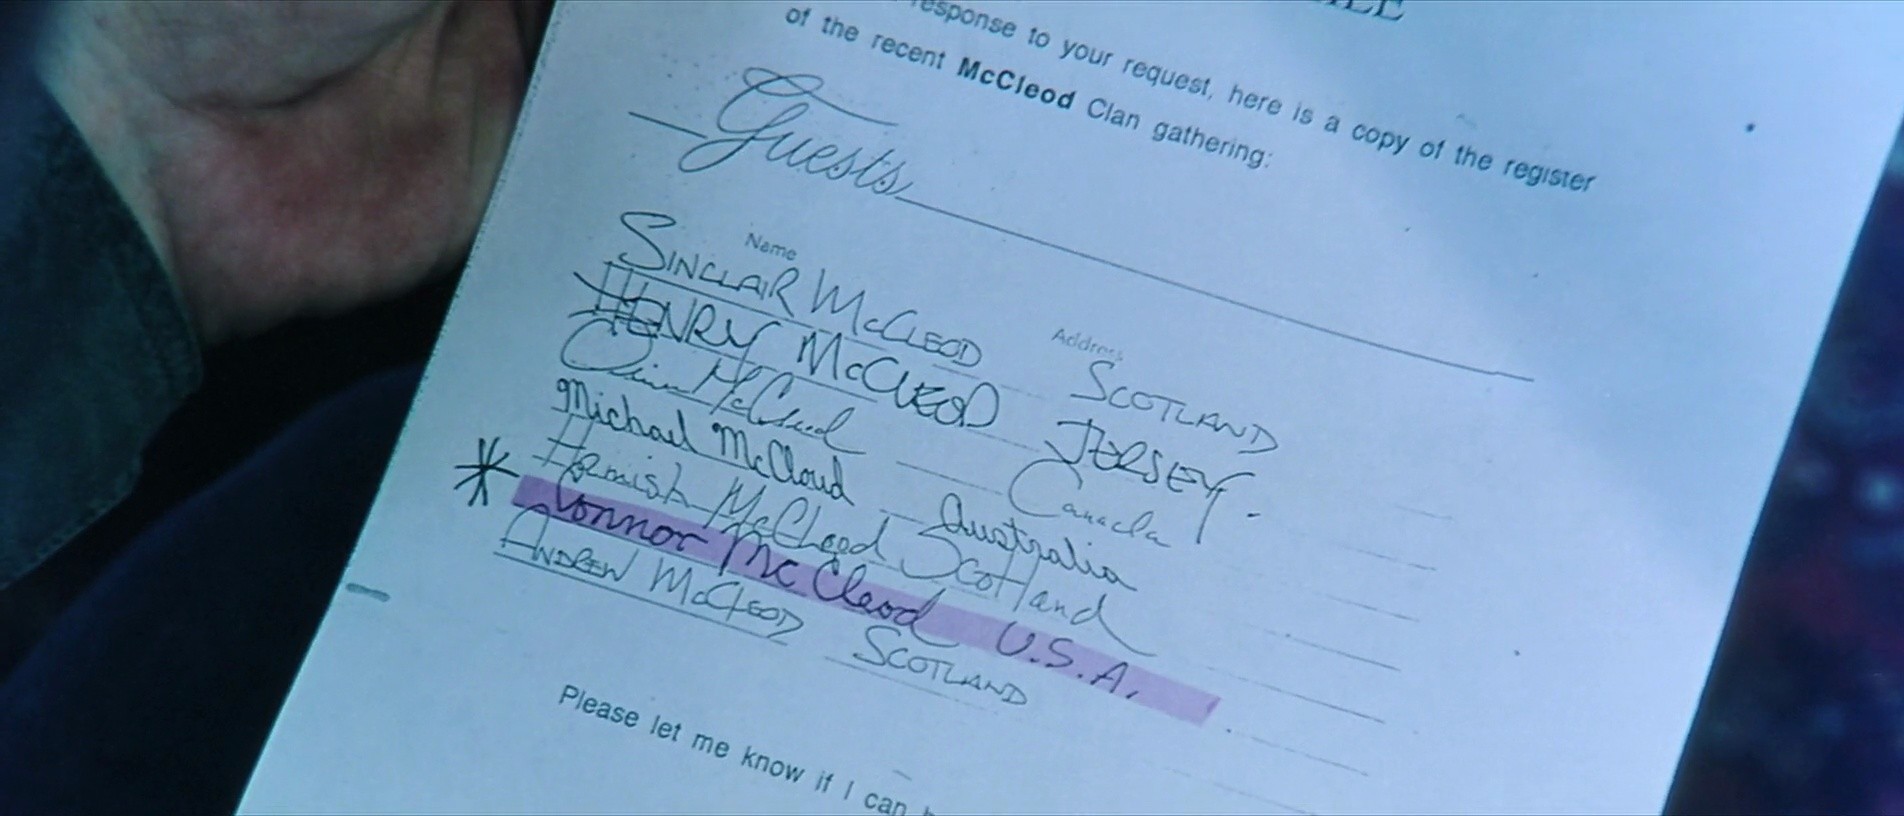 response to your request, here is a copy of the register
of the recent McCleod Clan gathering:
Guests
Name Address
SINCLAIR McCLEOD SCOTLAND
HENRY McCLEOD JERSEY.
McCleod Canada
Michael McCloud Australia
Hamish McCleod Scotland
* Connor McCleod U.S.A.
ANDREW McCLEOD SCOTLAND
Please let me know if I can